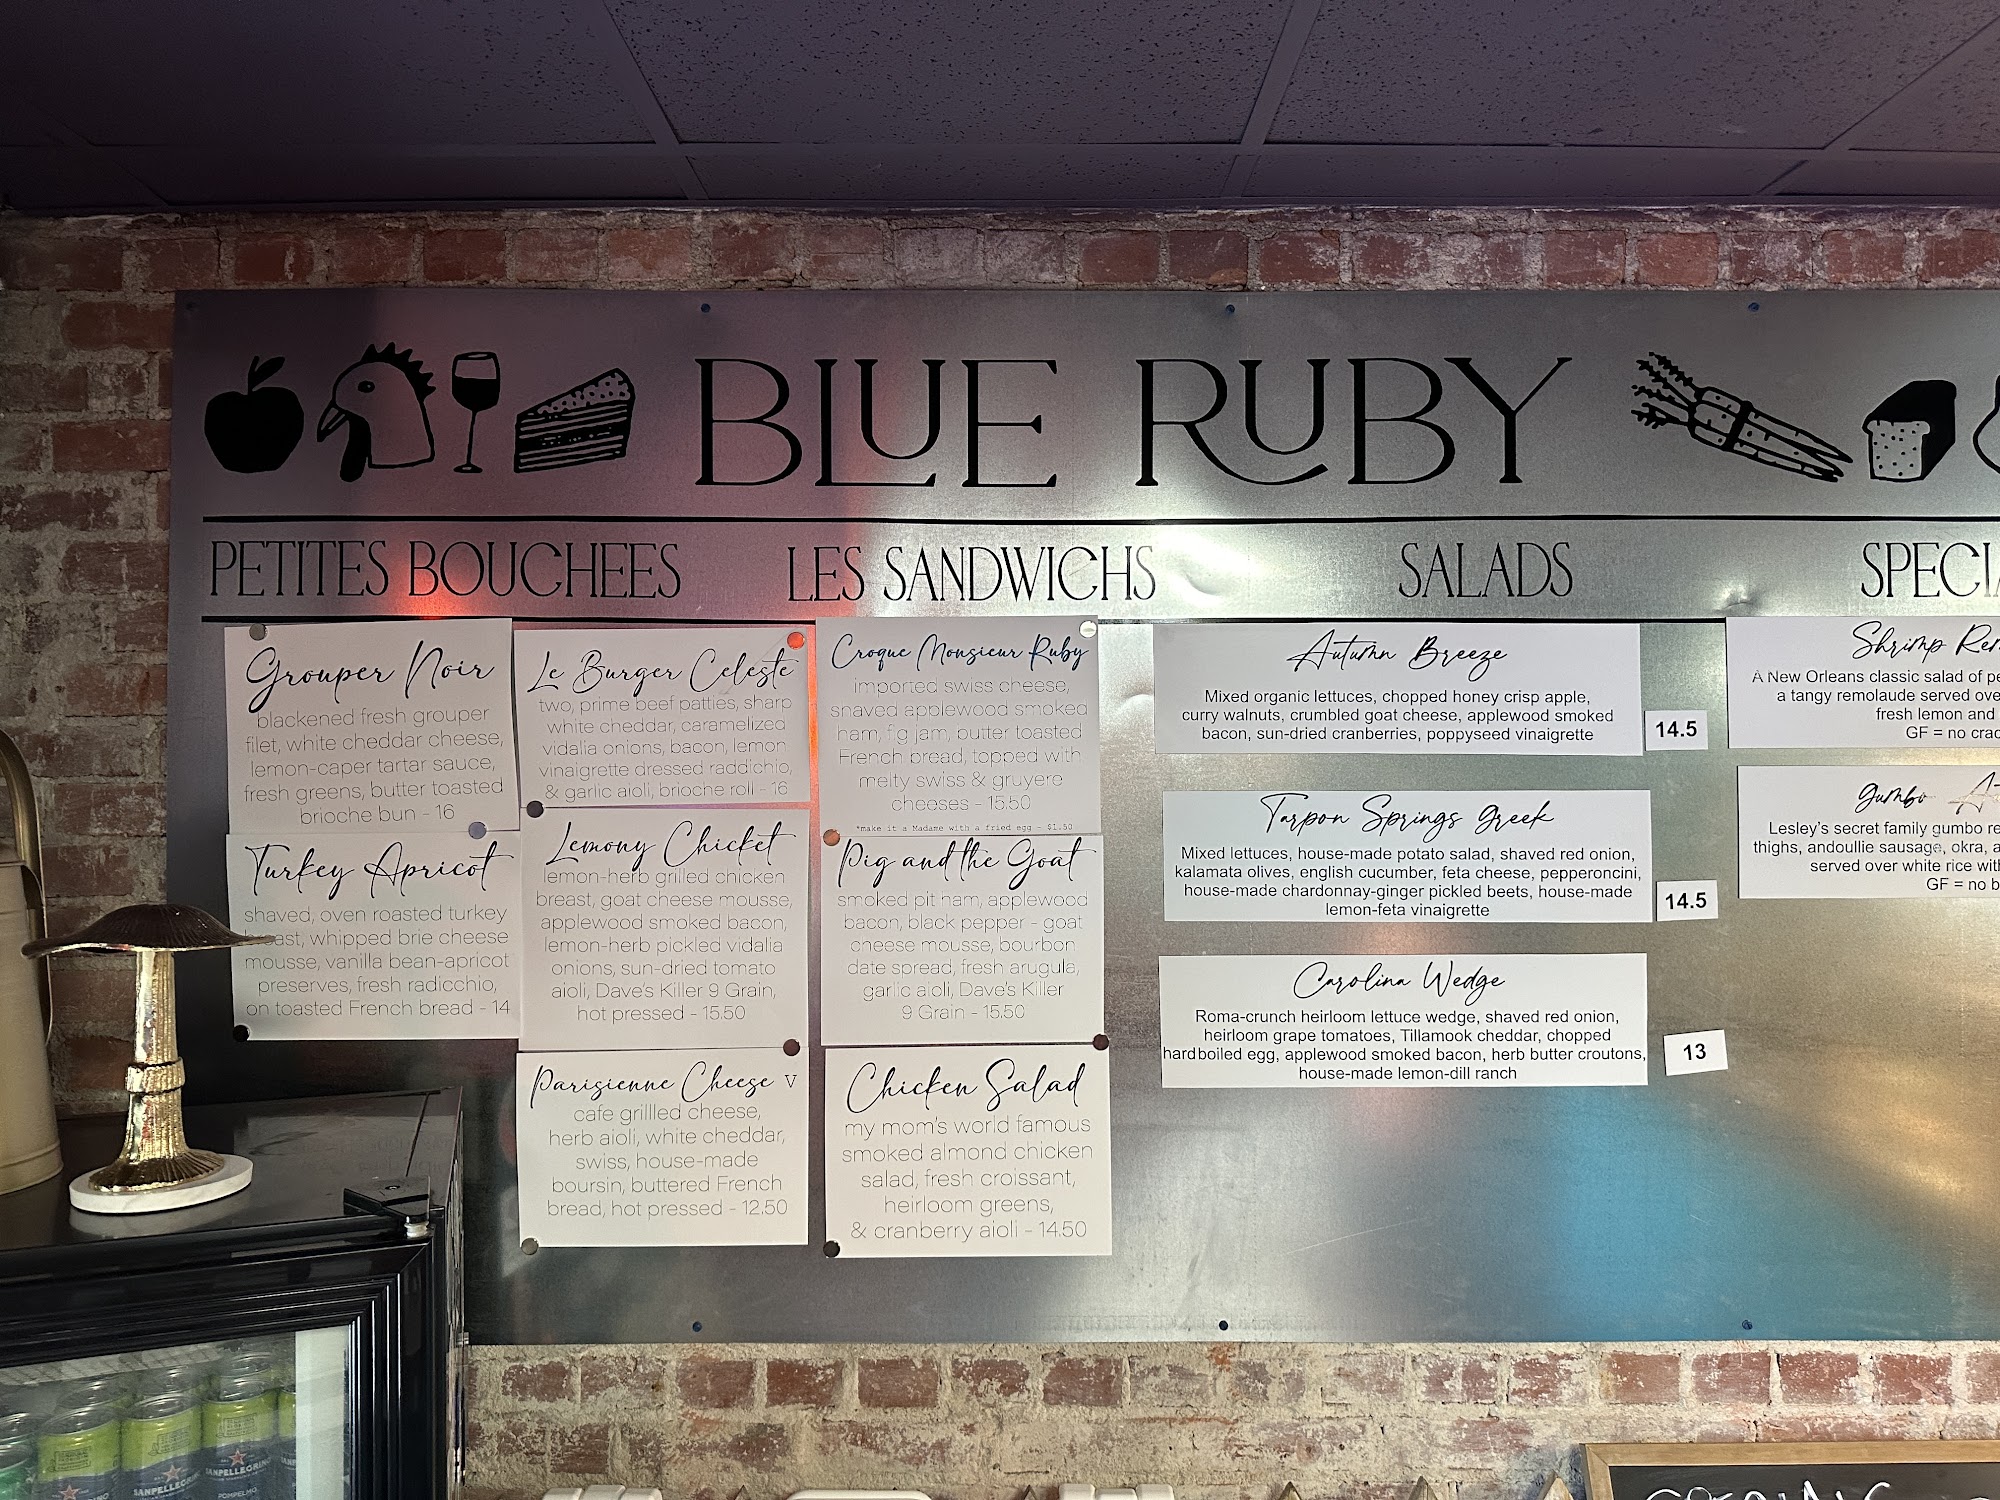 BLUE RUBY
PETITES BOUCHEES
LES SANDWICHS
SALADS
Grouper Noir
blackened fresh grouper
filet, white cheddar cheese,
lemon-caper tartar sauce,
fresh greens, butter toasted
brioche bun - 16
Turkey Apricot
shaved, oven roasted turkey
breast, whipped brie cheese
mousse, vanilla bean-apricot
preserves, fresh radicchio,
on toasted French bread - 14
Le Burger Celeste
two, prime beef patties, sharp
white cheddar, caramelized
vidalia onions, bacon, lemon
vinaigrette dressed raddichio,
& garlic aioli, brioche roll - 16
Lemony Chicket
lemon-herb grilled chicken
breast, goat cheese mousse,
applewood smoked bacon,
lemon-herb pickled vidalia
onions, sun-dried tomato
aioli, Dave's Killer 9 Grain,
hot pressed - 15.50
Parisienne Cheese V
cafe grillled cheese,
herb aioli, white cheddar,
swiss, house-made
boursin, buttered French
bread, hot pressed - 12.50
Croque Monsieur Ruby
imported swiss cheese,
shaved applewood smoked
ham, fig jam, butter toasted
French bread, topped with
melty swiss & gruyere
cheeses - 15.50
*make it a Madame with a fried egg - $1.50
Pig and the Goat
smoked pit ham, applewood
bacon, black pepper - goat
cheese mousse, bourbon
date spread, fresh arugula,
garlic aioli, Dave's Killer
9 Grain - 15.50
Chicken Salad
my mom's world famous
smoked almond chicken
salad, fresh croissant,
heirloom greens,
& cranberry aioli - 14.50
Autumn Breeze
Mixed organic lettuces, chopped honey crisp apple,
curry walnuts, crumbled goat cheese, applewood smoked
bacon, sun-dried cranberries, poppyseed vinaigrette
14.5
Tarpon Springs Greek
Mixed lettuces, house-made potato salad, shaved red onion,
kalamata olives, english cucumber, feta cheese, pepperoncini,
house-made chardonnay-ginger pickled beets, house-made
lemon-feta vinaigrette
14.5
Carolina Wedge
Roma-crunch heirloom lettuce wedge, shaved red onion,
heirloom grape tomatoes, Tillamook cheddar, chopped
hardboiled egg, applewood smoked bacon, herb butter croutons,
house-made lemon-dill ranch
13
Shrimp
A New Orleans classic salad of
a tangy remolaude served
fresh lemon and
GF = no
Gumbo
Lesley's secret family gumbo
thighs, andoullie sausage, okra,
served over white rice
GF = no
SANPELLEGRINO
POMPELMO
SANPELLEGRINO